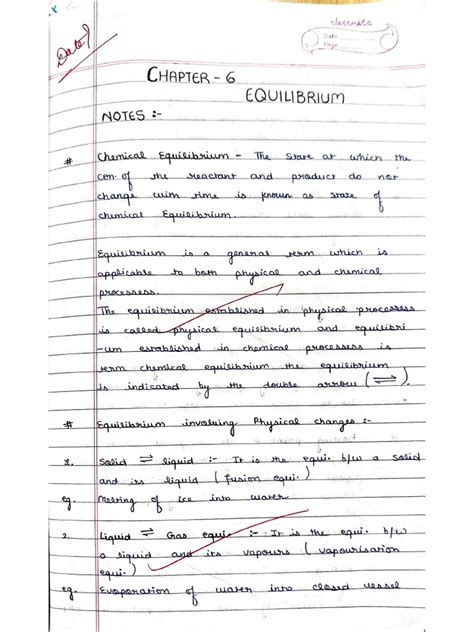 classmate
Date
Page
Date?
CHAPTER - 6
EQUILIBRIUM
NOTES :-
# Chemical Equilibrium - The state at which the
con. of the reactant and product do not
change with time is known as state of
chemical Equilibrium.
Equilibrium is a general term which is
applicable to both physical and chemical
processess.
The equilibrium established in physical processess
is called physical equilibrium and equilibri
-um established in chemical processess is
term chemical equilibrium the equilibrium
is indicated by the double arrow (⇌).
# Equilibrium involving Physical changes :-
1. Solid ⇌ liquid :- It is the equi. b/w a solid
and its liquid (fusion equi.)
eg. Melting of Ice into water
2. Liquid ⇌ Gas equi. :- It is the equi. b/w
a liquid and its vapours (vapourisation
equi.)
eg. Evaporation of water into closed vessel